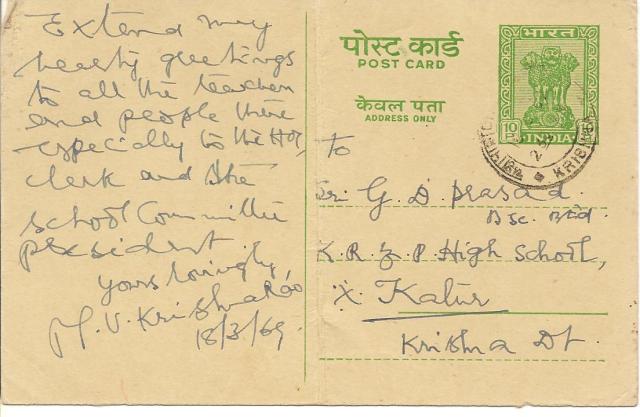 Extend my
hearty greetings
to all the teachers
and people there
especially to the Hd,
clerk and the
school Committee
president.
Yours lovingly,
M. V. Krishna Rao
18/3/69.
पोस्ट कार्ड
POST CARD
केवल पता
ADDRESS ONLY
भारत
10
P.
INDIA
KRISHNA
To
Sri G. D. Prasad
BSc. BEd.
K. R. Z. P High School,
X. Kalur
Krishna Dt.